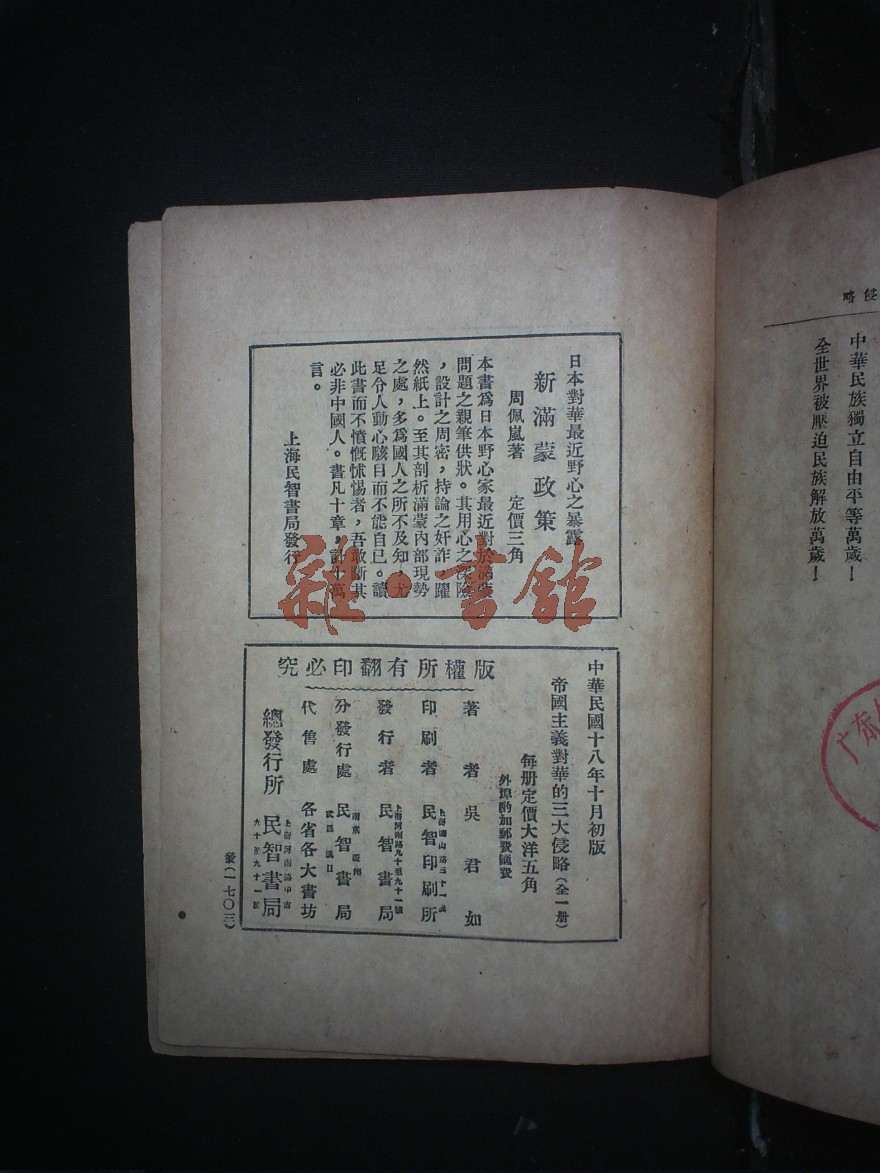 侵略
中華民族獨立自由平等萬歲！
全世界被壓迫民族解放萬歲！
广东
日本對華最近野心之暴露
新滿蒙政策
周佩嵐著　定價三角
本書爲日本野心家最近對於滿蒙
問題之親筆供狀。其用心之深險
，設計之周密，持論之奸詐，躍
然紙上。至其剖析滿蒙內部現勢
之處，多爲國人之所不及知，尤
足令人動心駭目而不能自已。讀
此書而不憤慨怵惕者，吾敢斷其
必非中國人。書凡十章，計十萬
言。
上海民智書局發行
雜·書館
中華民國十八年十月初版
帝國主義對華的三大侵略（全一册）
每册定價大洋五角
外埠酌加郵費匯費
版權所有翻印必究
著者 吳君如
印刷者 民智印刷所
發行者 上海河南路九十至九十一號 民智書局
分發行處 南京 廣州 武昌 漢口 民智書局
代售處 各省各大書坊
總發行所 上海河南路中市 九十至九十一號 民智書局
（一七〇三）